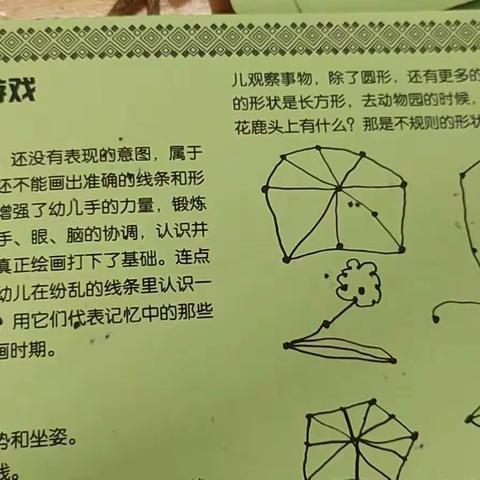 游戏
还没有表现的意图，属于
还不能画出准确的线条和形
增强了幼儿手的力量，锻炼
手、眼、脑的协调，认识并
真正绘画打下了基础。连点
幼儿在纷乱的线条里认识一
，用它们代表记忆中的那些
画时期。
势和坐姿。
线。
儿观察事物，除了圆形，还有更多的
的形状是长方形，去动物园的时候，
花鹿头上有什么？那是不规则的形状